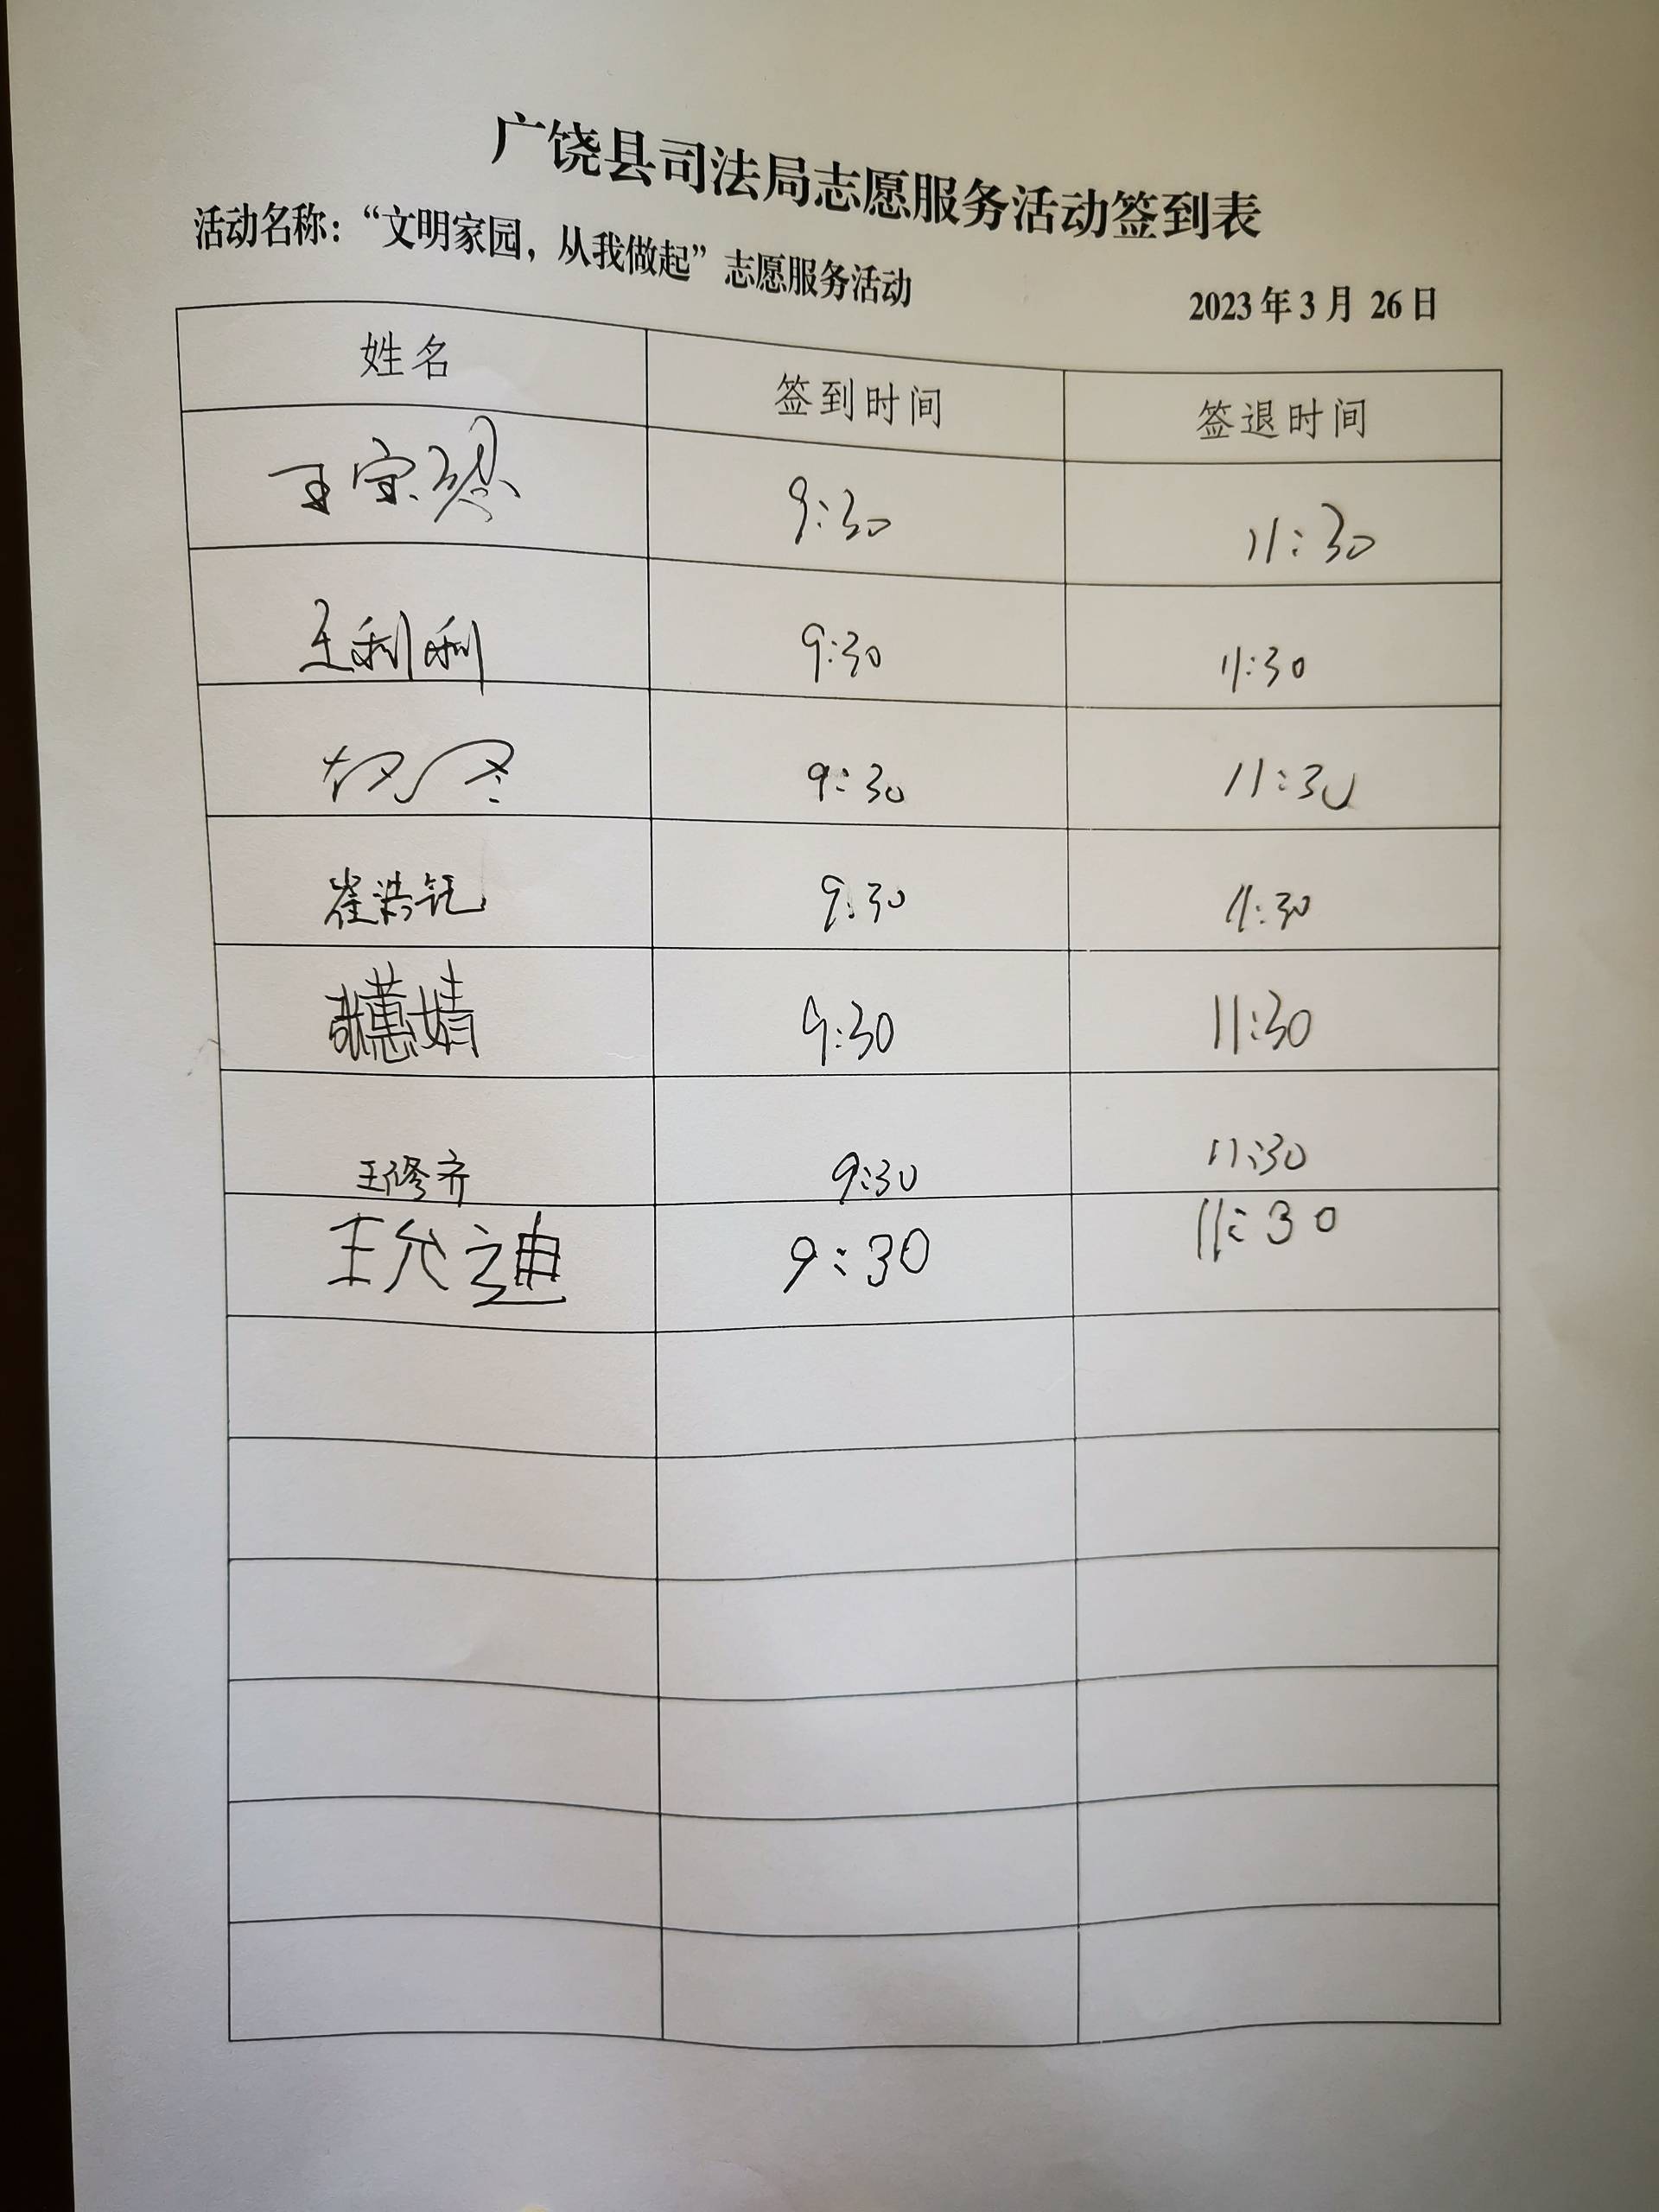 广饶县司法局志愿服务活动签到表
活动名称：“文明家园，从我做起”志愿服务活动
2023年3月 26日
姓名 签到时间 签退时间
王宝 9:30 11:30
王利利 9:30 11:30
9:30 11:30
崔浩钰 9:30 11:30
张蕙婧 9:30 11:30
王修齐 9:30 11:30
王允迪 9:30 11:30